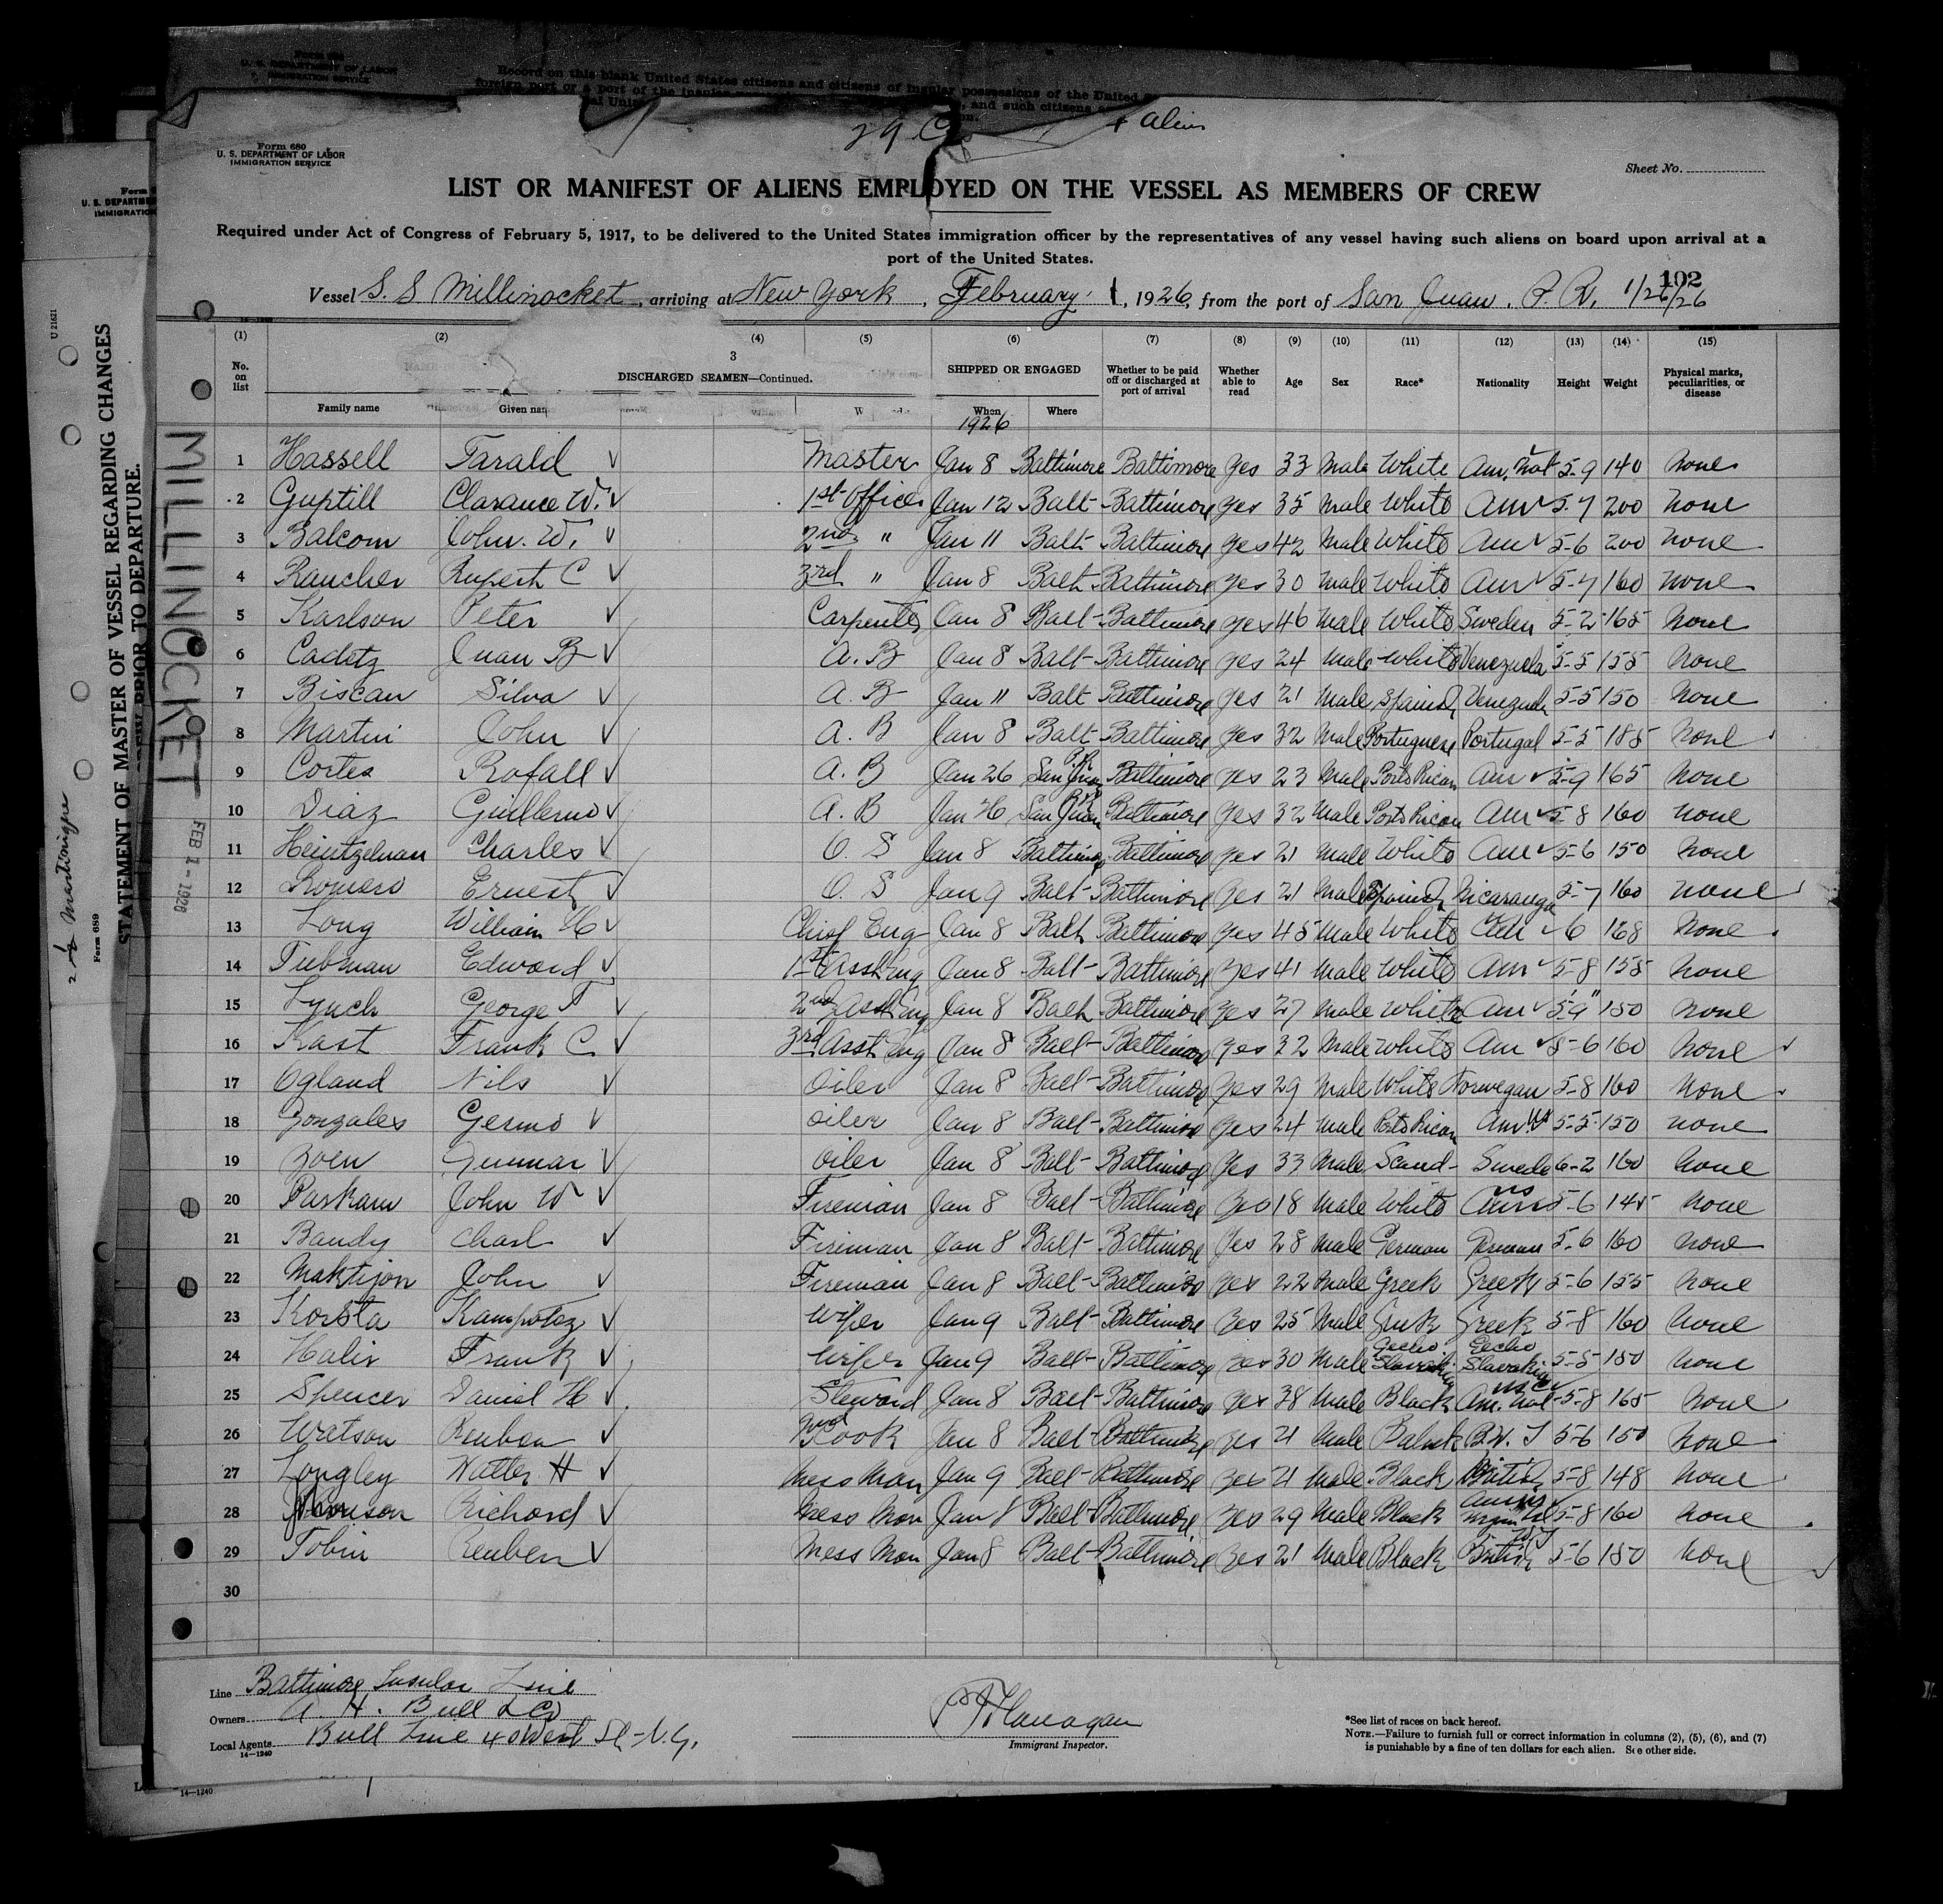 Form 680
U. S. DEPARTMENT OF LABOR
IMMIGRATION SERVICE
Record on this blank United States citizens and citizens of insular possessions of the United
foreign port or a port of the insular
and such citizens
29
Alien
Form 680
U. S. DEPARTMENT OF LABOR
IMMIGRATION SERVICE
Sheet No.
LIST OR MANIFEST OF ALIENS EMPLOYED ON THE VESSEL AS MEMBERS OF CREW
Required under Act of Congress of February 5, 1917, to be delivered to the United States immigration officer by the representatives of any vessel having such aliens on board upon arrival at a
port of the United States.
102
Vessel S. S Millinocket, arriving at New York, February 1, 1926, from the port of San Juan. P. R. 1/26/26
(1) (2) (4) (5) (6) (7) (8) (9) (10) (11) (12) (13) (14) (15)
3
DISCHARGED SEAMEN—Continued.
No. on list Family name Given nam SHIPPED OR ENGAGED When Where Whether to be paid off or discharged at port of arrival Whether able to read Age Sex Race* Nationality Height Weight Physical marks, peculiarities, or disease
1926
1 Hassell Tarald ✓ Master Jan 8 Baltimore Baltimore yes 33 Male White Am. Nat 5-9 140 none
2 Guptill Clarance W. ✓ 1st Officer Jan 12 Balt Baltimore yes 35 Male White Am ✓ 5-7 200 none
3 Balcom John. W. ✓ 2nd " Jan 11 Balt Baltimore yes 42 Male White Am ✓ 5-6 200 none
4 Raucher Rupert C ✓ 3rd " Jan 8 Balt Baltimore yes 30 Male White Am ✓ 5-7 160 none
5 Karlson Peter ✓ Carpenter Jan 8 Balt Baltimore yes 46 Male White Sweden 5-2 165 none
6 Cadetz Juan B ✓ A. B Jan 8 Balt Baltimore yes 24 Male White Venezuela 5-5 155 none
7 Biscan Silva ✓ A. B Jan 11 Balt Baltimore yes 21 Male Spanish Venezuela 5-5 150 none
8 Martin John ✓ A. B Jan 8 Balt Baltimore yes 32 Male Portuguese Portugal 5-5 185 none
9 Cortes Rofall ✓ A. B Jan 26 San Juan P.R Baltimore yes 23 Male Porto Rican Am ✓ 5-9 165 none
10 Diaz Guillermo ✓ A. B Jan 26 San Juan P.R Baltimore yes 32 Male Porto Rican Am ✓ 5-8 160 none
11 Heintzelman Charles ✓ O. S Jan 8 Baltimore Baltimore yes 21 Male White Am ✓ 5-6 150 none
12 Romero Ernest ✓ O. S Jan 9 Balt Baltimore yes 21 Male Spanish Nicaragua 5-7 160 none
13 Long William H ✓ Chief Eng Jan 8 Balt Baltimore yes 45 Male White Am ✓ 6 168 none
14 Tubman Edward ✓ 1st Asst Eng Jan 8 Balt Baltimore yes 41 Male White Am ✓ 5-8 155 none
15 Lynch George F ✓ 2nd Asst Eng Jan 8 Balt Baltimore yes 27 Male White Am ✓ 5'9" 150 none
16 Kast Frank C ✓ 3rd Asst Eng Jan 8 Balt Baltimore yes 32 Male White Am ✓ 5-6 160 none ✓
17 Ogland Nils ✓ Oiler Jan 8 Balt Baltimore yes 29 Male White Norwegan 5-8 160 none
18 Gonzales Germo ✓ Oiler Jan 8 Balt Baltimore yes 24 Male Porto Rican Am US 5-5 150 none
19 Zoen Gunnar ✓ Oiler Jan 8 Balt Baltimore yes 33 Male Scand- Swede 6-2 160 none
20 Parkam John W ✓ Fireman Jan 8 Balt Baltimore yes 18 Male White Am US 5-6 145 none
21 Bandy Charl ✓ Fireman Jan 8 Balt Baltimore yes 28 Male German German 5-6 160 none
22 Maktijon John ✓ Fireman Jan 8 Balt Baltimore yes 22 Male Greek Greek 5-6 155 none
23 Korsta Kampotoz ✓ Wiper Jan 9 Balt Baltimore yes 25 Male Greek Greek 5-8 160 none
24 Halir Frank ✓ Wiper Jan 9 Balt Baltimore yes 30 Male Cecho Slovakia Cecho Slovakia 5-5 150 none
25 Spencer Daniel H ✓ Steward Jan 8 Balt Baltimore yes 38 Male Black Am. Nat US 5-8 165 none
26 Watson Reuben ✓ 2nd Cook Jan 8 Balt Baltimore yes 21 Male Balack B.W. I 5-6 150 none
27 Longley Walter H ✓ Mess Man Jan 9 Balt Baltimore yes 21 Male Black British 5-8 148 none
28 Johnson Richard ✓ Mess Man Jan 8 Balt Baltimore yes 29 Male Black Virgin 5-8 160 none
29 Tobin Reuben ✓ Mess Man Jan 8 Balt Baltimore yes 21 Male Black British WI 5-6 150 none ✓
30
Line Baltimore Insular Line
Owners A. H. Bull & Co
Local Agents Bull Line 40 West St- N.Y.
14—1240
P Flanagan
Immigrant Inspector.
*See list of races on back hereof.
NOTE.—Failure to furnish full or correct information in columns (2), (5), (6), and (7)
is punishable by a fine of ten dollars for each alien. See other side.
14—1240
MILLINOCKET
FEB 1 - 1926
STATEMENT OF MASTER OF VESSEL REGARDING CHANGES
PRIOR TO DEPARTURE.
Form 689
U 21621
U. S. DEPARTME
IMMIGRATION